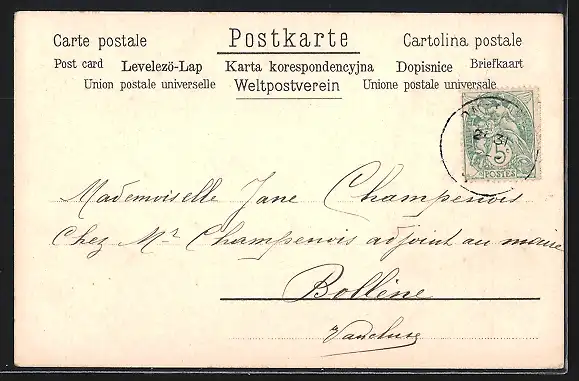 Carte postale Postkarte Cartolina postale
Post card Levelezö-Lap Karta korespondencyjna Dopisnice Briefkaart
Union postale universelle Weltpostverein Unione postale universale
31
5c
POSTES
Mademoiselle Jane Champenois
Chez Mr Champenois adjoint au maire
Bollène
Vaucluse